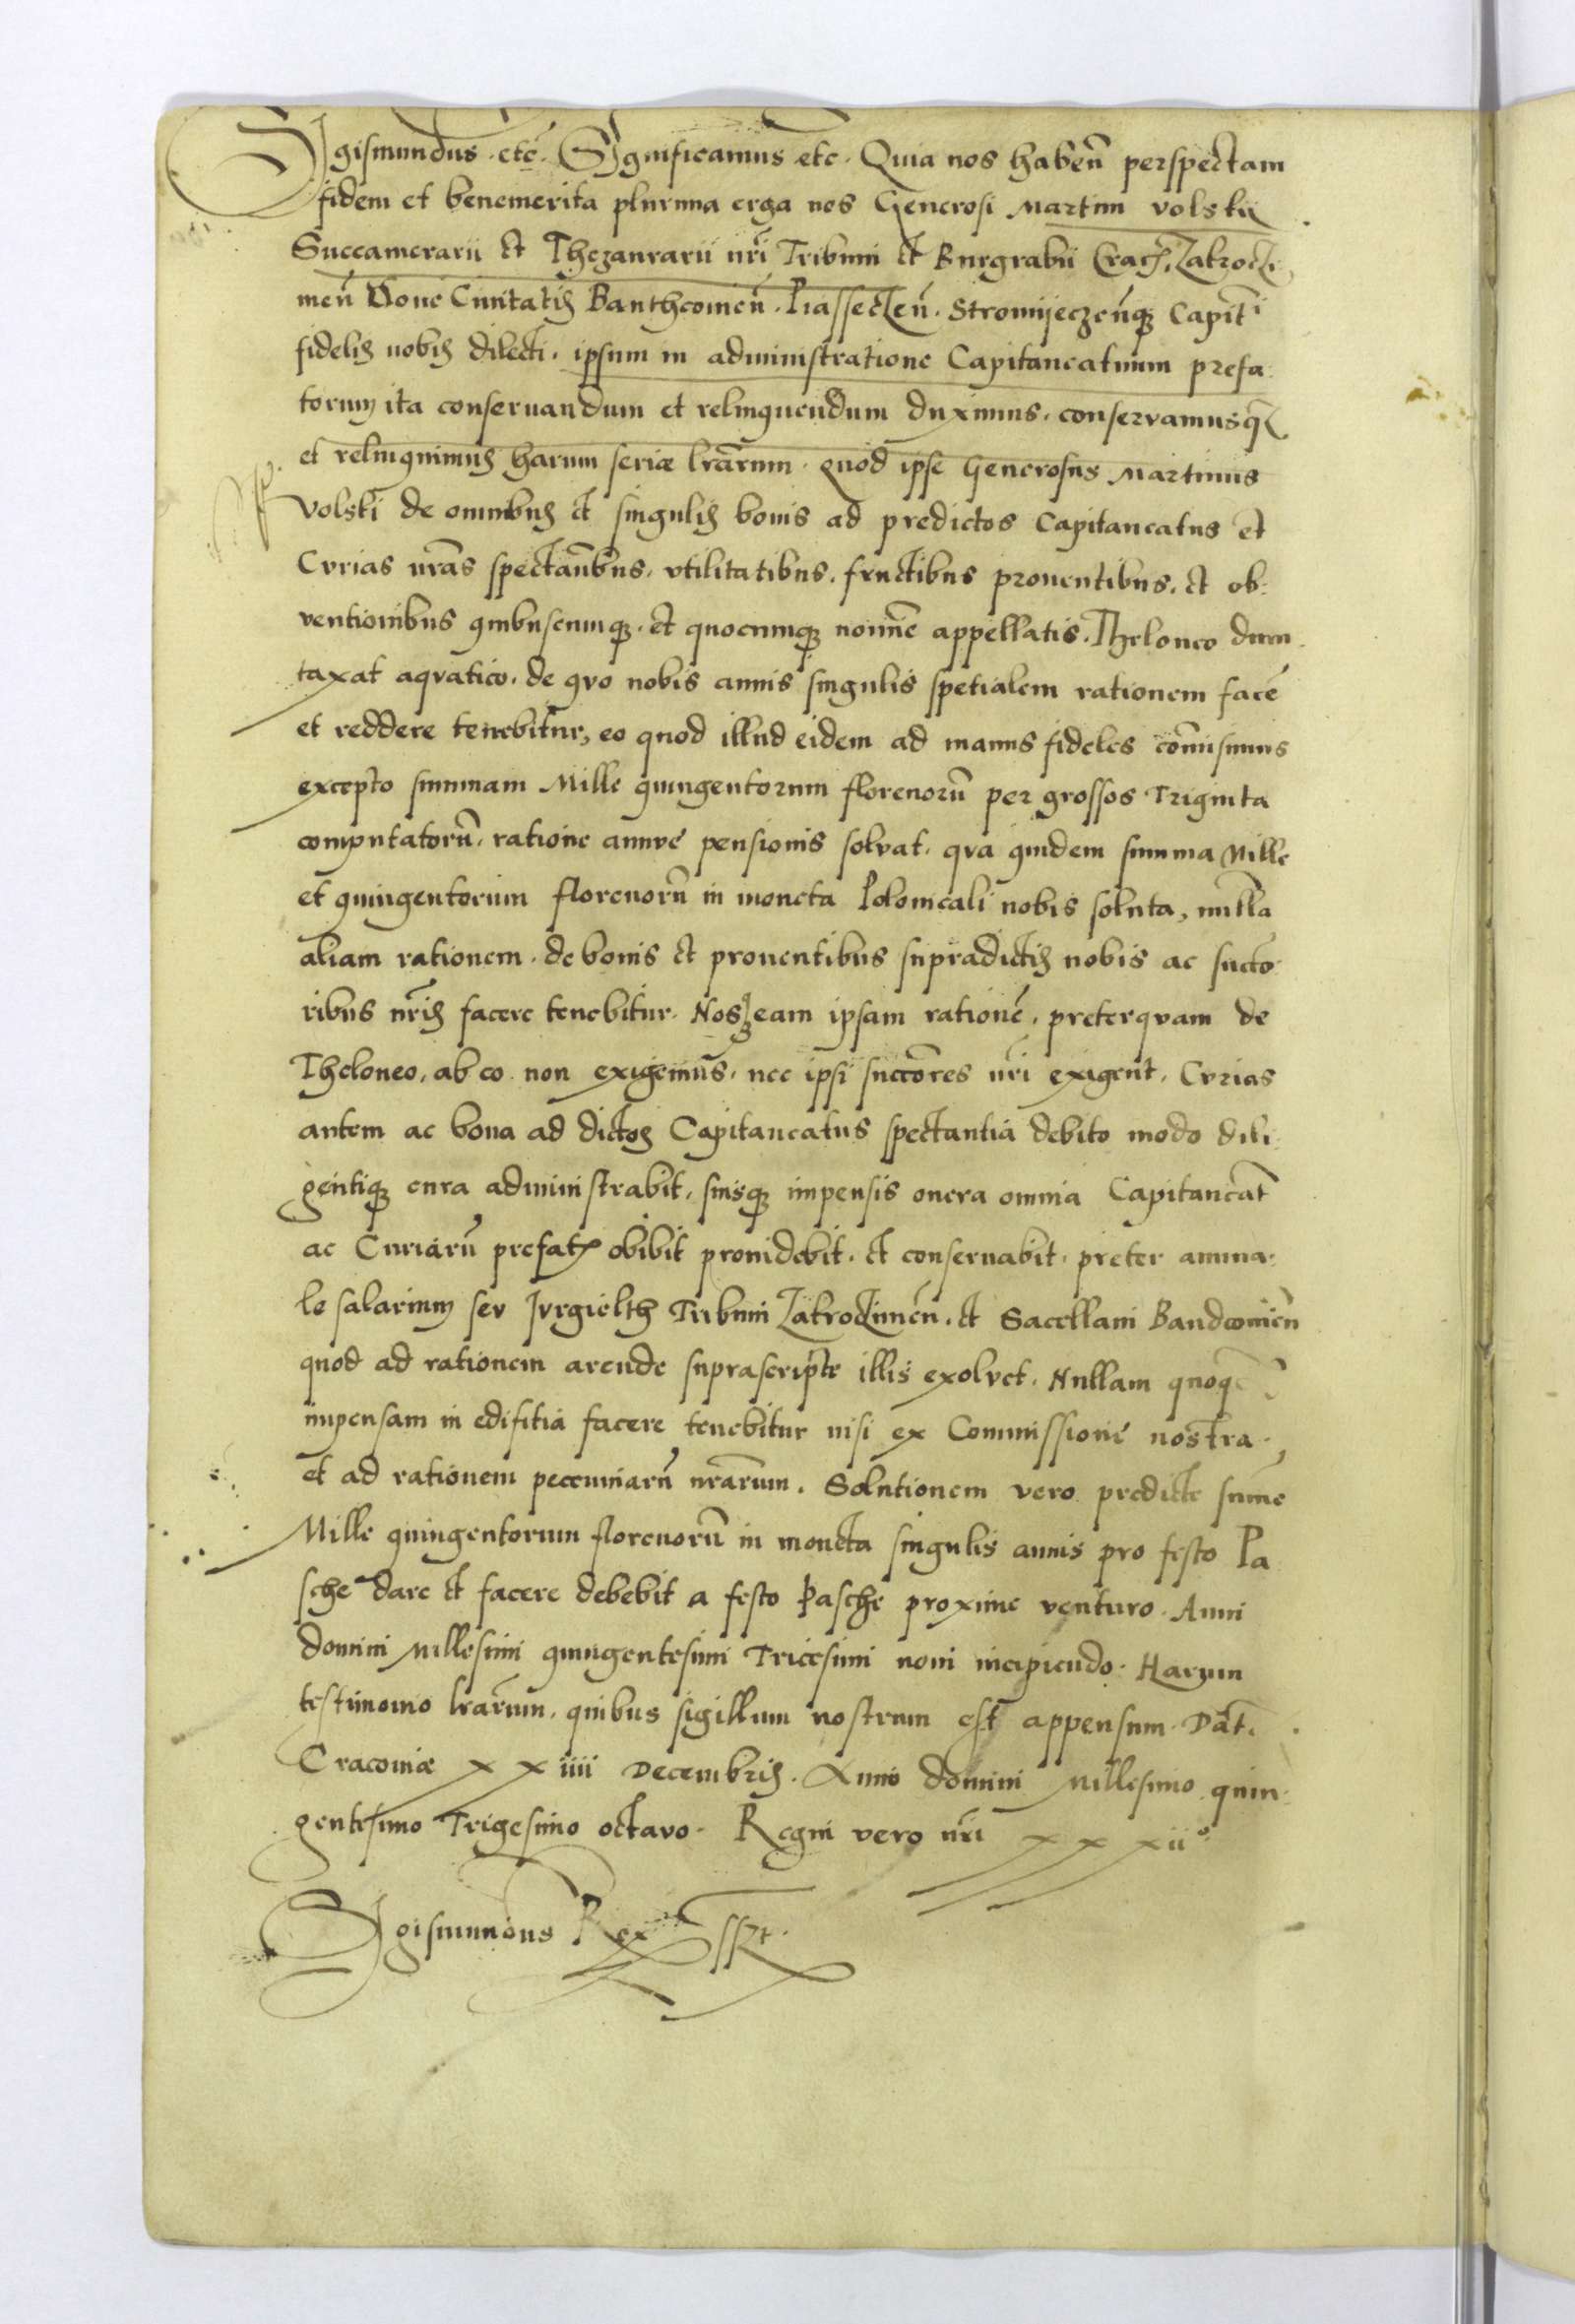 Sigismundus etc. Significamus etc. Quia nos haben̄ perspectam
fidem et benemerita plurima erga nos Generosi Martini Volskij
Succamerarii et Thezaurarii nr̄i Tribuni et Burgrabii Crac. Zakroczi
men̄ Noue Ciuitatis Banthcomen̄. Piasseczen̄. Stromijeczen̄q3 Capit̄i
fidelis nobis dilecti. ipsum in administratione Capitaneatuum prefa
torum ita conseruandum et relinquendum duximus. conservamusq3
et relinquimus harum seriæ lr̄arum. quod ipse Generosus Martinus
Volski de omnibus et singulis bonis ad predictos Capitaneatus et
Cvrias nr̄as spectan̄bus. vtilitatibus. fructibus prouentibus. et ob
ventionibus quibuscumq3. et quocumq3 nomīe appellatis. Theloneo dum
taxat aqvatico. de qvo nobis annis singulis spetialem rationem facē
et reddere tenebitur, eo quod illud eidem ad manus fideles com̄isimus
excepto summam Mille quingentorum florenorū per grossos Triginta
computatorū. ratione annve pensionis solvat. qva quidem summa Mille
et quingentorum florenorū in moneta Polonicali nobis soluta, nullā
aliam rationem. de bonis et prouentibus supradictis nobis ac succo
ribus nr̄is facere tenebitur. Nosq3 eam ipsam rationē. preterqvam de
Theloneo, ab eo non exigemus. nec ipsi succōres nr̄i exigent. Cvrias
autem ac bona ad dictos Capitaneatus spectantia debito modo dili
gentiq3 cura administrabit. suisq3 impensis onera omnia Capitaneat̄
ac Curiarū prefat. obibit prouidebit. et conseruabit. preter annua
le salarium sev Jvrgielth Tribuni Zakroczimen̄. et Sacellani Bandcomien̄
quod ad rationem arende suprascripte illis exolvet. Nullam quoq3
impensam in edifitia facere tenebitur nisi ex Commissione nostra.
et ad rationem peccuniarū nr̄arum. Solutionem vero predicte sum̄e
Mille quingentorum florenorū in moneta singulis annis pro festo Pa
sche dare et facere debebit a festo Pasche proxime venturo. Anni
domini Millesimi quingentesimi Tricesimi noni incipiendo. Harum
testimonio lr̄arum. quibus sigillum nostrum est appensum. Dat̄.
Cracoviæ xxiiii Decembris. Anno domini Millesimo quin
gentesimo Trigesimo octavo. Regni vero nr̄i xxxii°
Sigismundus Rex sspt.